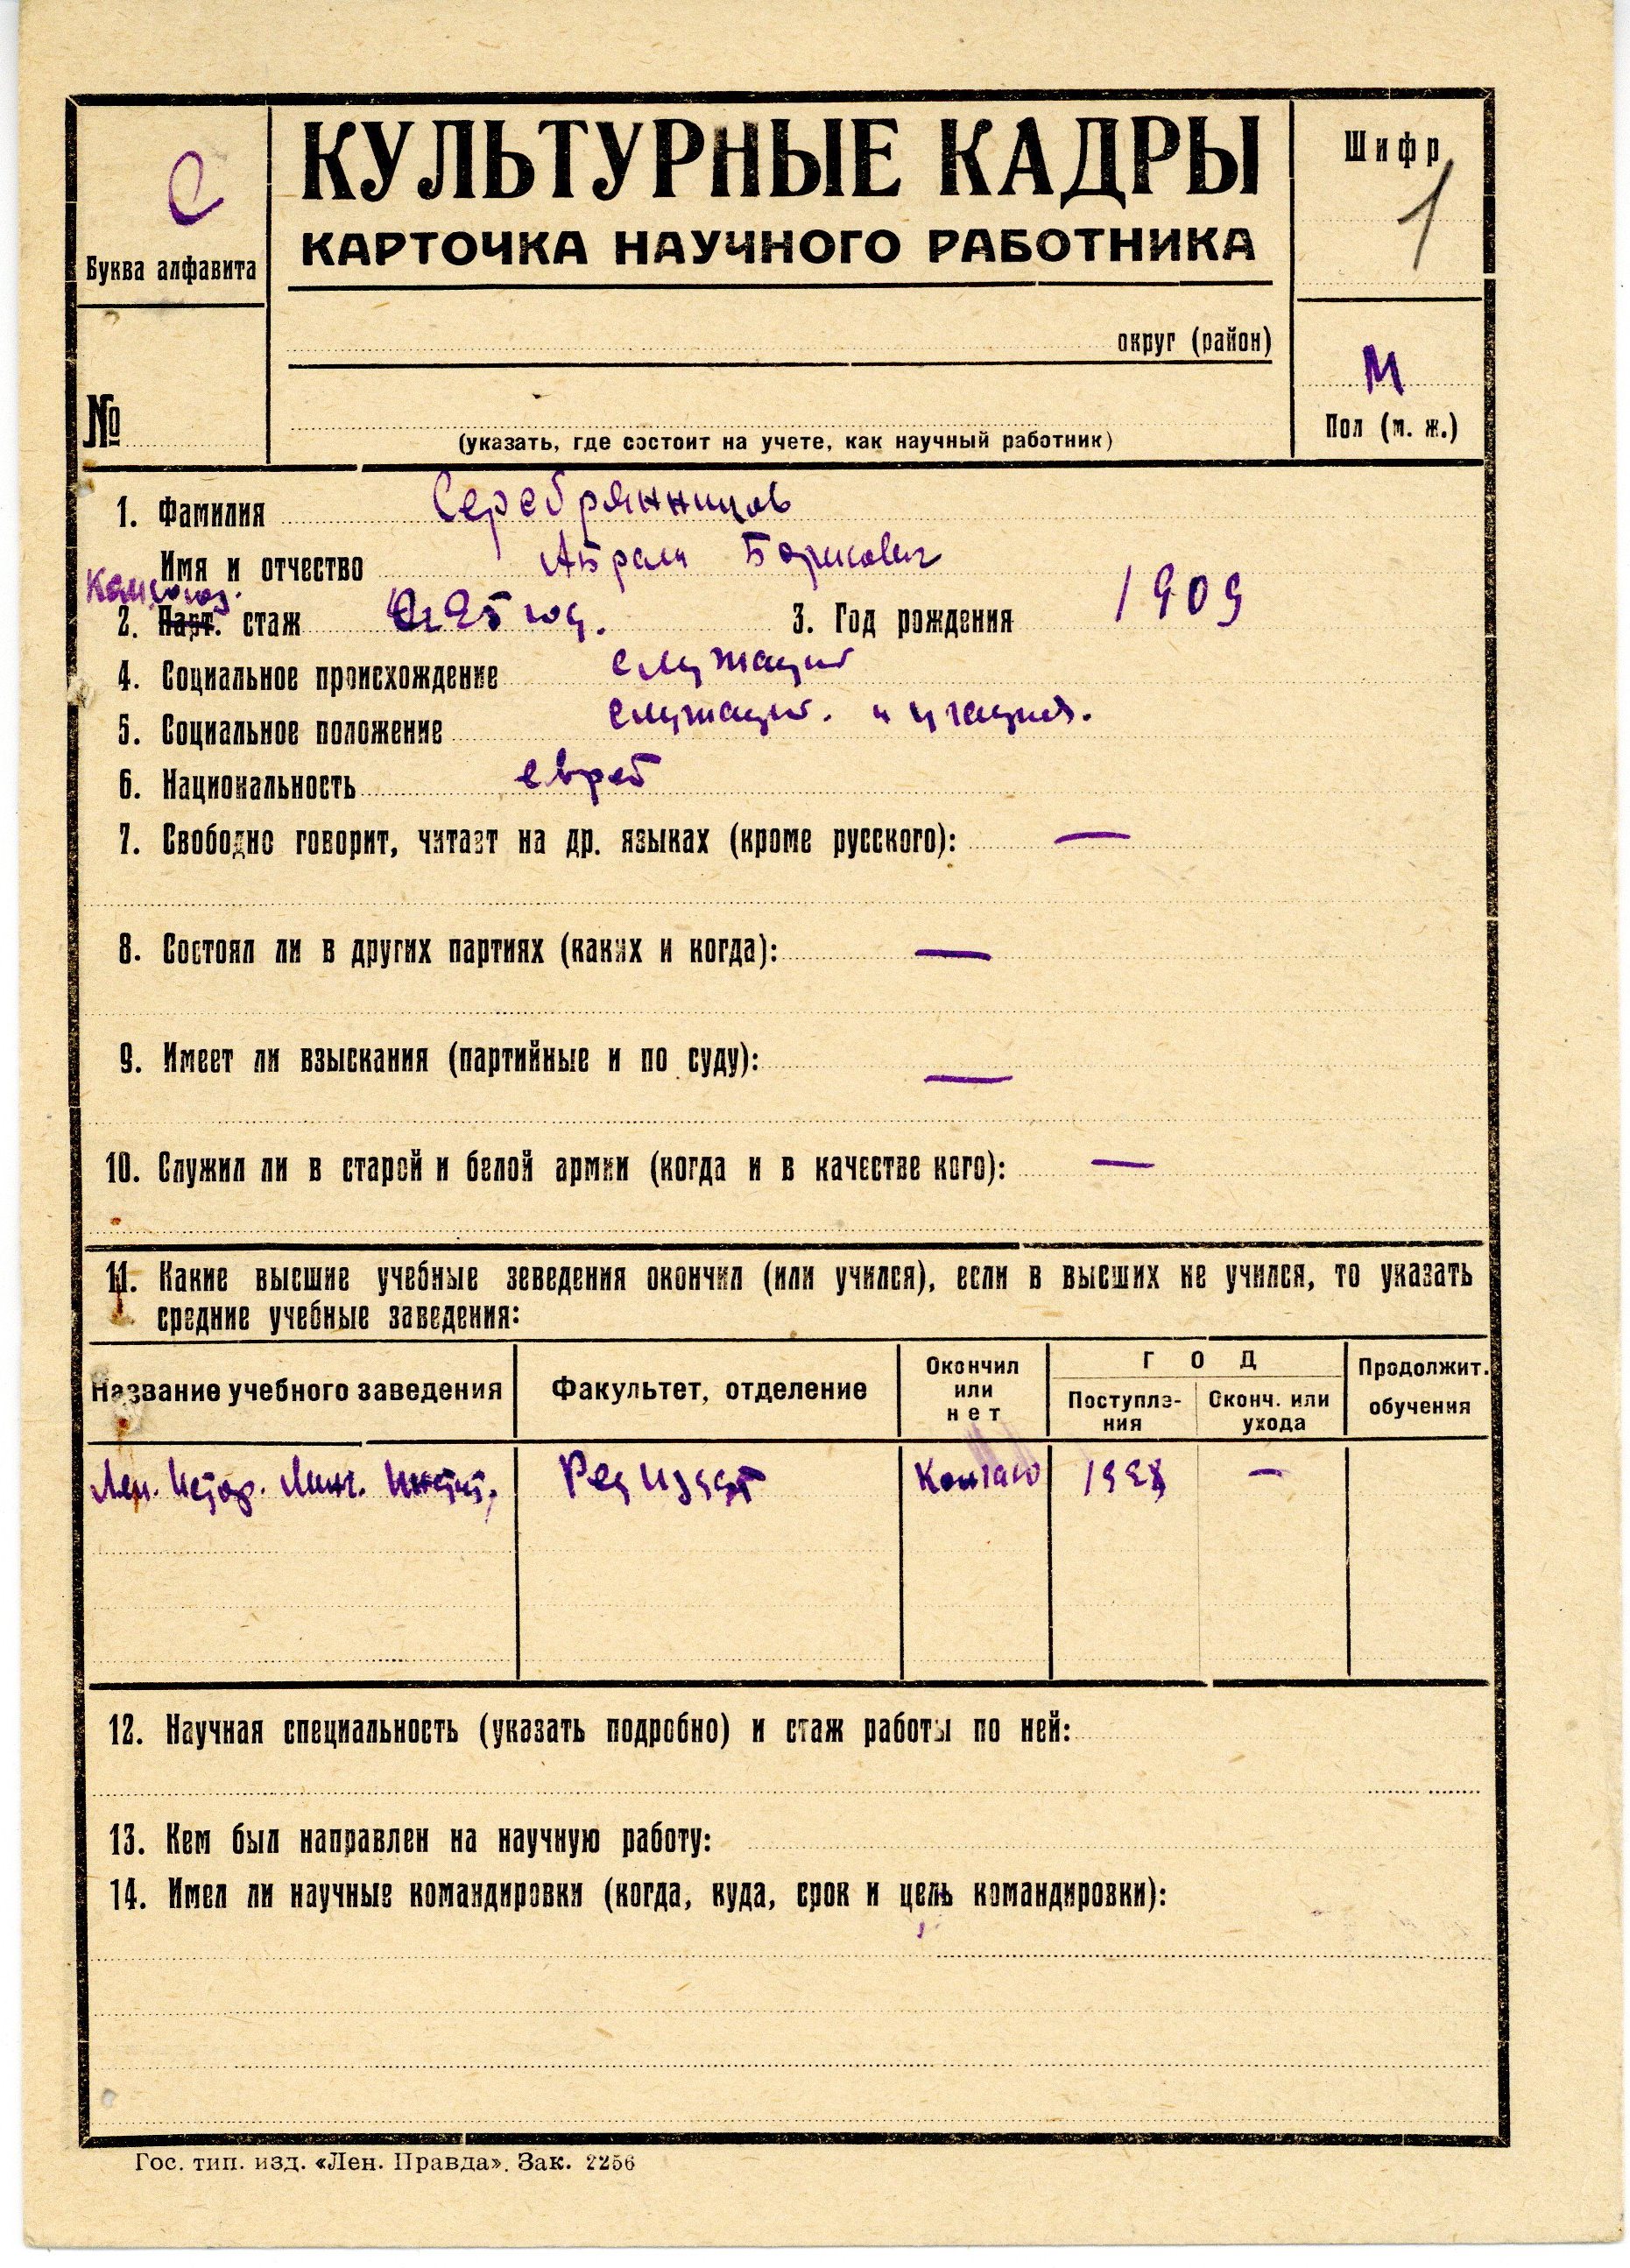 С
Буква алфавита
КУЛЬТУРНЫЕ КАДРЫ
КАРТОЧКА НАУЧНОГО РАБОТНИКА
Шифр
1
округ (район)
№
(указать, где состоит на учете, как научный работник)
М
Пол (м. ж.)
1. Фамилия Серебрянников
Имя и отчество Абрам Борисович
Комсомол.
2. Парт. стаж с 25 год. 3. Год рождения 1909
4. Социальное происхождение служащий
5. Социальное положение служащий. и учащийся.
6. Национальность еврей
7. Свободно говорит, читает на др. языках (кроме русского): —
8. Состоял ли в других партиях (каких и когда): —
9. Имеет ли взыскания (партийные и по суду): —
10. Служил ли в старой и белой армии (когда и в качестве кого): —
11. Какие высшие учебные зеведения окончил (или учился), если в высших не учился, то указать
средние учебные заведения:
Название учебного заведения Факультет, отделение Окончил или нет ГОД Поступления Сконч. или ухода Продолжит. обучения
Лен. Истор. Линг. Инстит. Ред издат Кончаю 1928 —
12. Научная специальность (указать подробно) и стаж работы по ней:
13. Кем был направлен на научную работу:
14. Имел ли научные командировки (когда, куда, срок и цель командировки):
Гос. тип. изд. «Лен. Правда». Зак. 2256